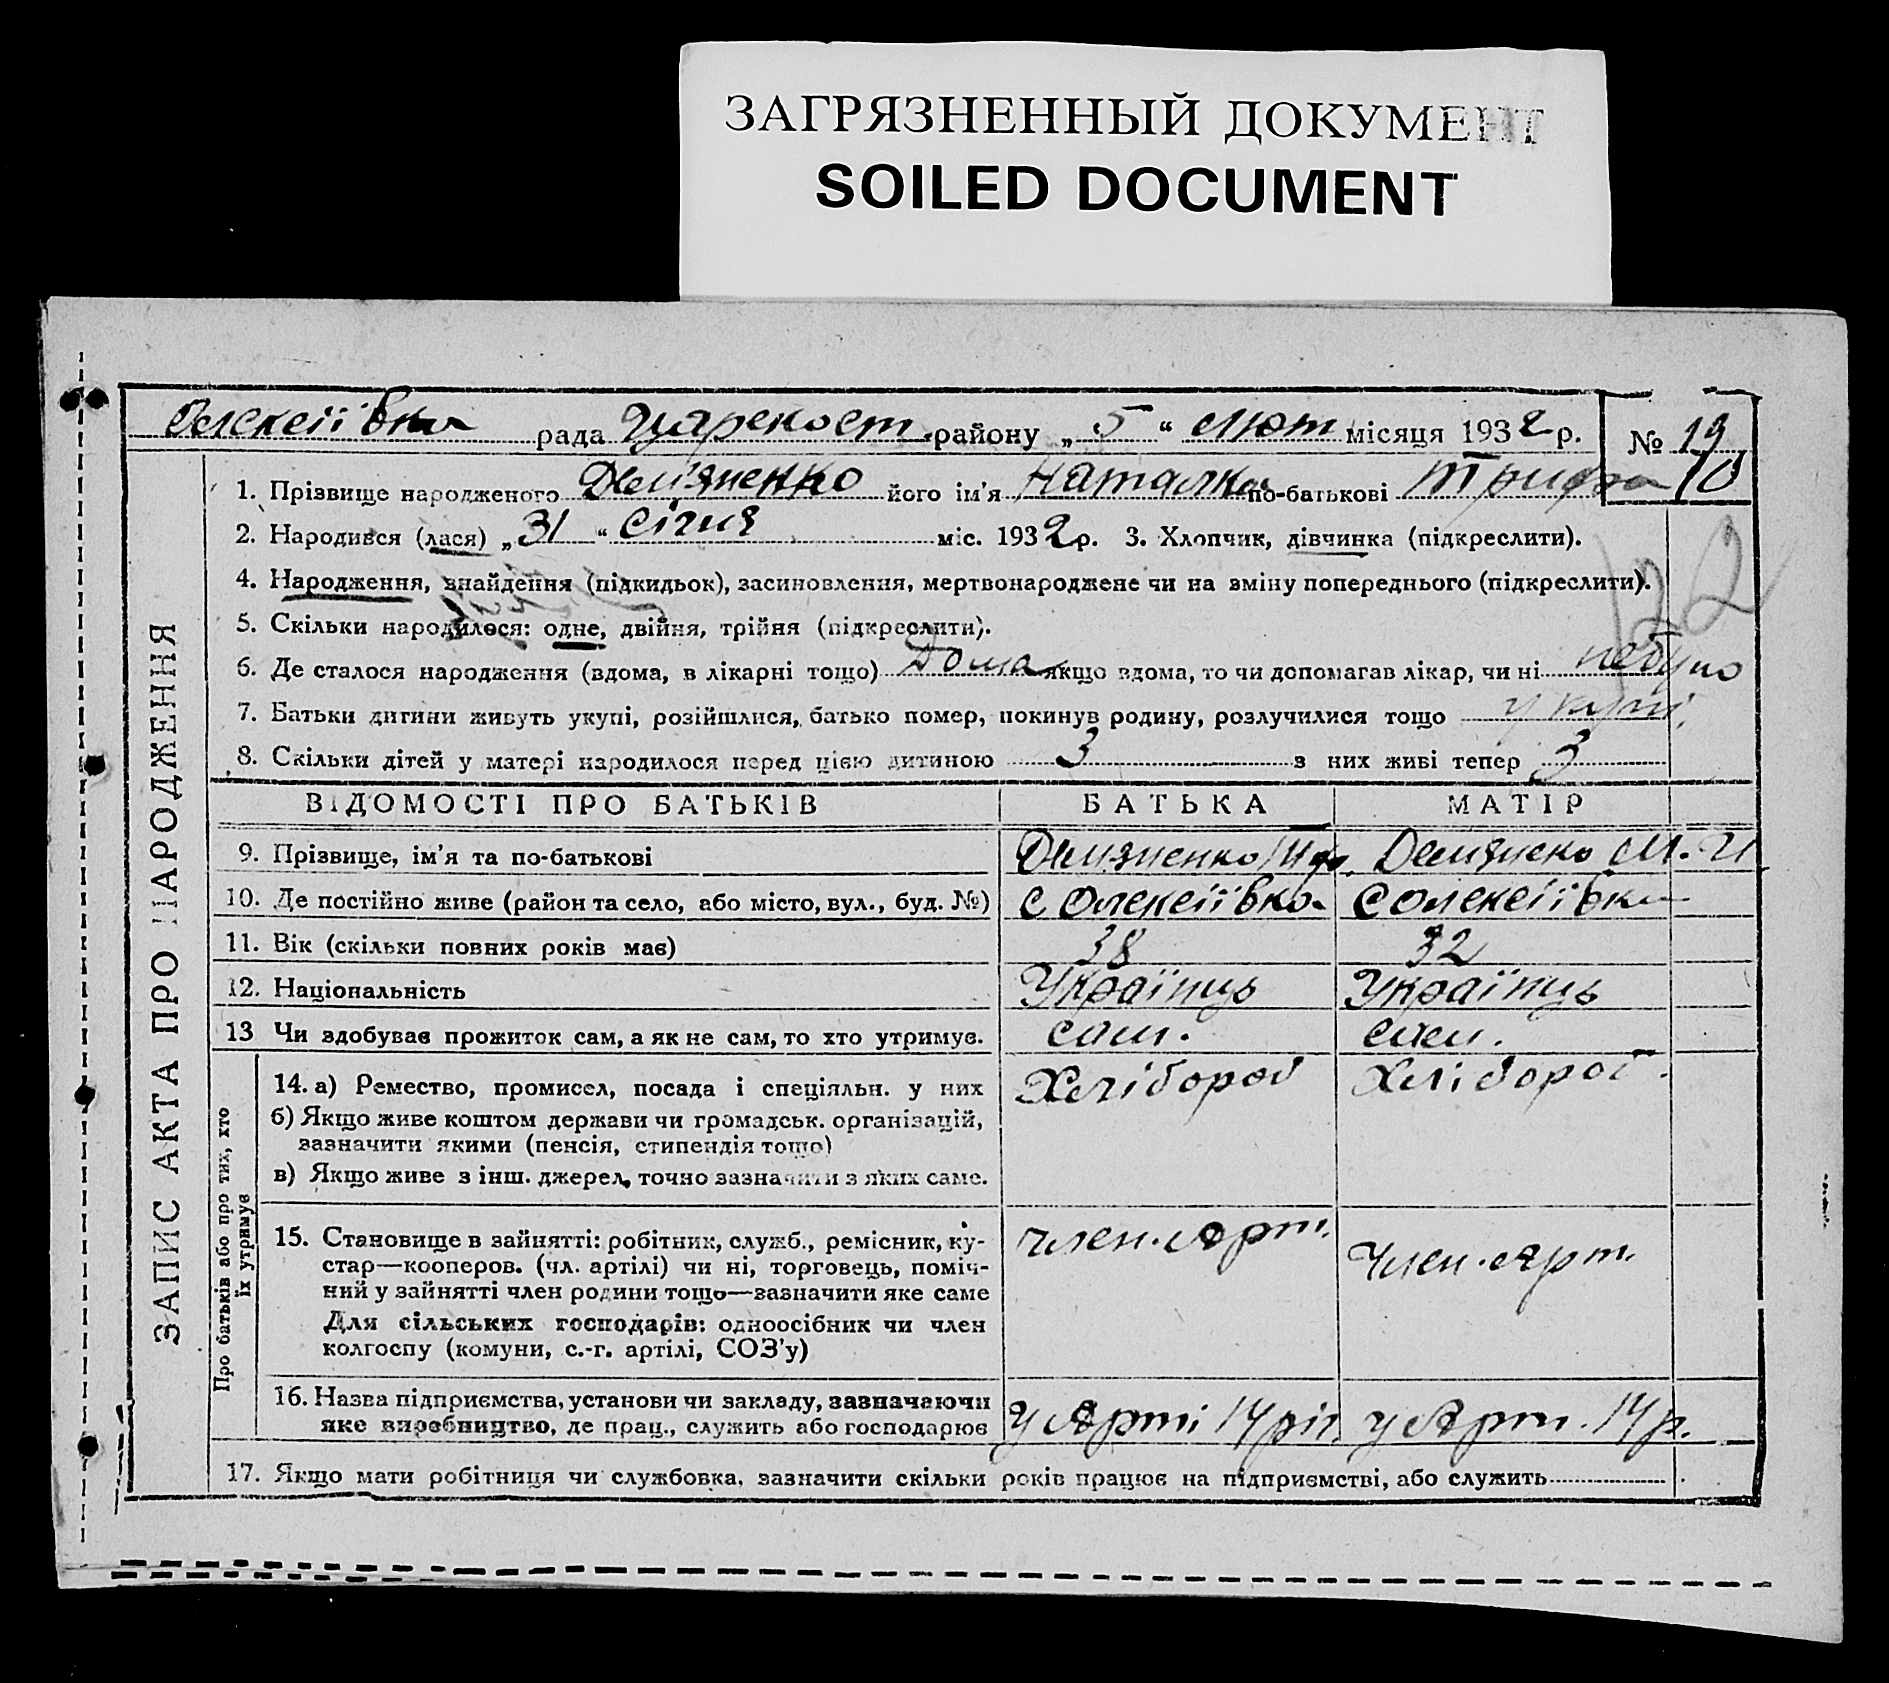 ЗАГРЯЗНЕННЫЙ ДОКУМЕНТ
SOILED DOCUMENT
Олексіївка рада район у „5“ Лют місяця 1932 р. № 19
1. Прізвище народженого Демяненко його ім’я Наталка по-батькові Трифо 10
2. Народився (лася) „31“ Січня міс. 1932 р. 3. Хлопчик, дівчинка (підкреслити).
4. Народження, знайдення (підкидьок), засиновлення, мертвонароджене чи на зміну попереднього (підкреслити).
5. Скільки народилося: одне, двійня, трійня (підкреслити).
6. Де сталося народження (вдома, в лікарні тощо) Дома якщо вдома, то чи допомагав лікар, чи ні небуло
7. Батьки дитини живуть укупі, розійшлися, батько помер, покинув родину, розлучилися тощо укупі.
8. Скільки дітей у матері народилося перед цією дитиною 3 з них живі тепер 3
ВІДОМОСТІ ПРО БАТЬКІВ БАТЬКА МАТІР
9. Прізвище, ім’я та по-батькові Демяненко Т. ф. Демянеко М. И
10. Де постійно живе (район та село, або місто, вул., буд. №) с Олексіївка с Олексіївка
11. Вік (скільки повних років має) 38 32
12. Національність Українць Українць
13 Чи здобував прожиток сам, а як не сам, то хто утримує. сам. сам.
14. а) Ремество, промисел, посада і спеціяльн. у них Хлібороб Хлібороб.
б) Якщо живе коштом держави чи громадськ. організацій,
зазначити якими (пенсія, стипендія тощо)
в) Якщо живе з інш. джерел, точно зазначити з яких саме.
15. Становище в зайнятті: робітник, служб., ремісник, ку-
стар—кооперов. (чл. артілі) чи ні, торговець, поміч-
ний у зайнятті член родини тощо—зазначити яке саме
Для сільських господарів: одноосібник чи член
колгоспу (комуни, с.-г. артілі, СОЗ’у)
член. Арт. член. Арт.
16. Назва підприємства, установи чи закладу, зазначаючи
яке виробництво, де прац., служить або господарює
у Арті 14 річ. у Арт. 14 р.
17. Якщо мати робітниця чи службовка, зазначити скільки років працює на підприємстві, або служить
ЗАПИС АКТА ПРО НАРОДЖЕННЯ
Про батьків або про тих, хто
їх утримує